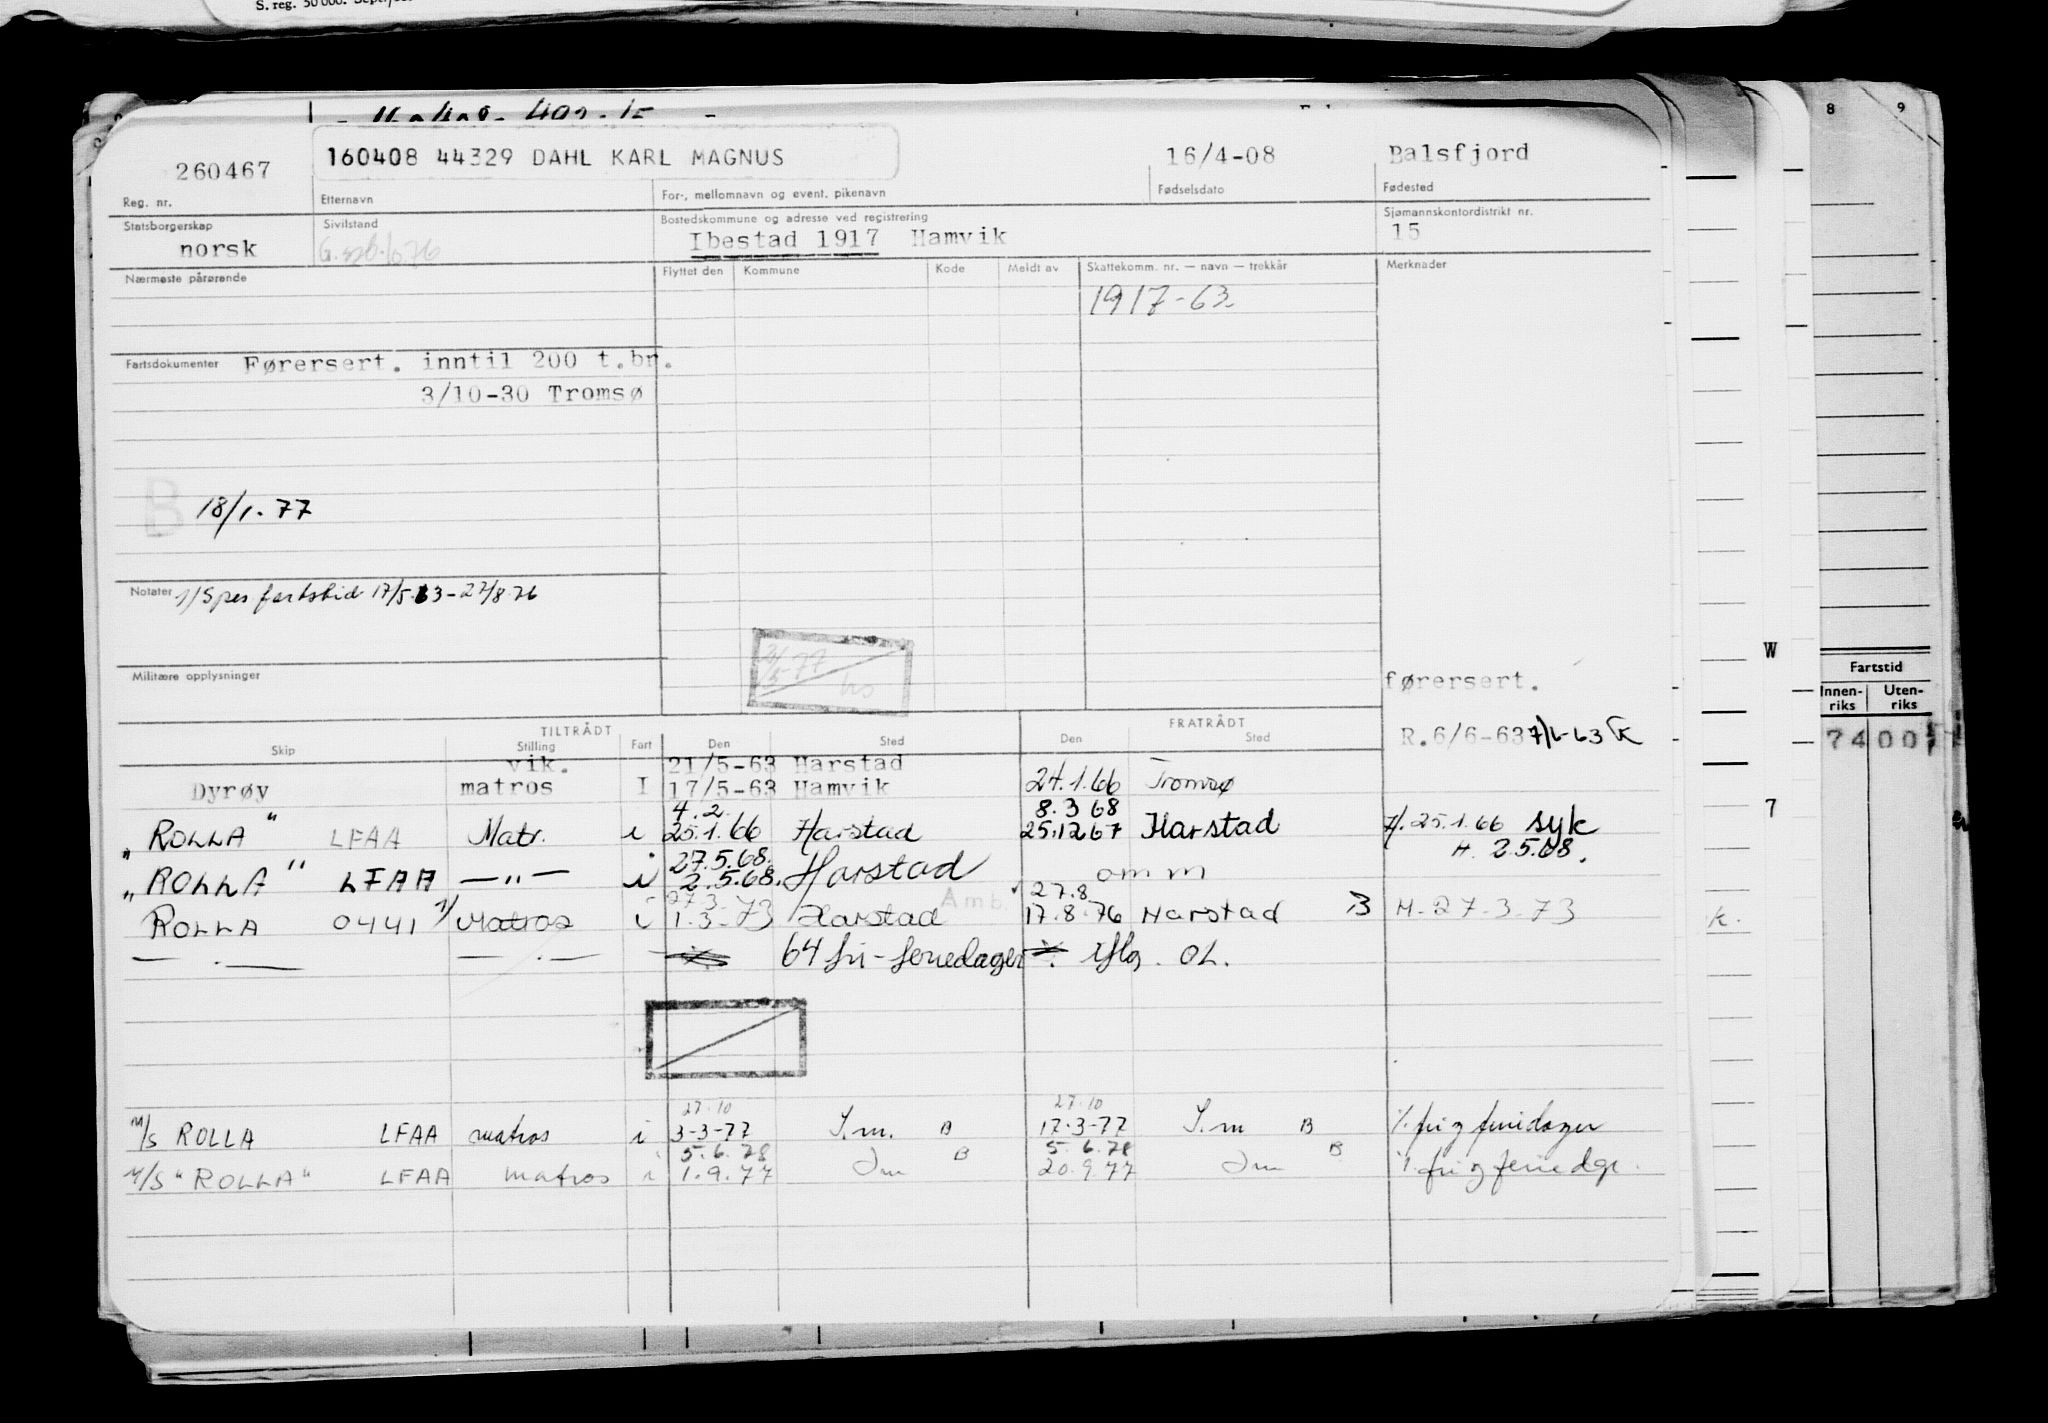 S. reg. 50 000.
8 9
260467 160408 44329 DAHL KARL MAGNUS 16/4-08 Balsfjord
Reg. nr. Etternavn For-, mellomnavn og event. pikenavn Fødselsdato Fødested
Statsborgerskap Sivilstand Bostedskommune og adresse ved registrering Sjømannskontordistrikt nr.
norsk Ibestad 1917 Hamvik 15
Nærmeste pårørende Flyttet den Kommune Kode Meldt av Skattekomm. nr. — navn — trekkår Merknader
1917-63
Fartsdokumenter Førersert. inntil 200 t.br.
3/10-30 Tromsø
B 18/1.77
Notater 1/ Spes fartstid 17/5.63-27/8.76
Militære opplysninger
førersert.
W
Fartstid
Innen-riks Uten-riks
7400
TILTRÅDT FRATRÅDT
Skip Stilling Fart Den Sted Den Sted R.6/6-63 7/6-63 K
vik. 21/5-63 Harstad
Dyrøy matros I 17/5-63 Hamvik 24.1.66 Tromsø
4.2. 8.3 68
7
"ROLLA" LFAA Matr. i 25.1.66 Harstad 25.12.67 Harstad H.25.1.66 syk
27.5.68. H. 2.5.68.
"ROLLA" LFAA —"— i 2.5.68. Harstad omm
27.3. Amb. 27.8
ROLLA 0441 1/ Matros i 1.3-73 Harstad 17.8.76 Harstad B H-27-3-73
k.
— . — — . — 64 fri-feriedager iflg. OL.
27.10 27.10
M/S ROLLA LFAA matros i 3-3-77 S.m. B 17.3-77 S.m B % fri g feriedager
5.6.78 B 5.6.78 B
M/S "ROLLA" LFAA matros i 1.9.77 Sm 20.9.77 Sm % fri g feriedgr.